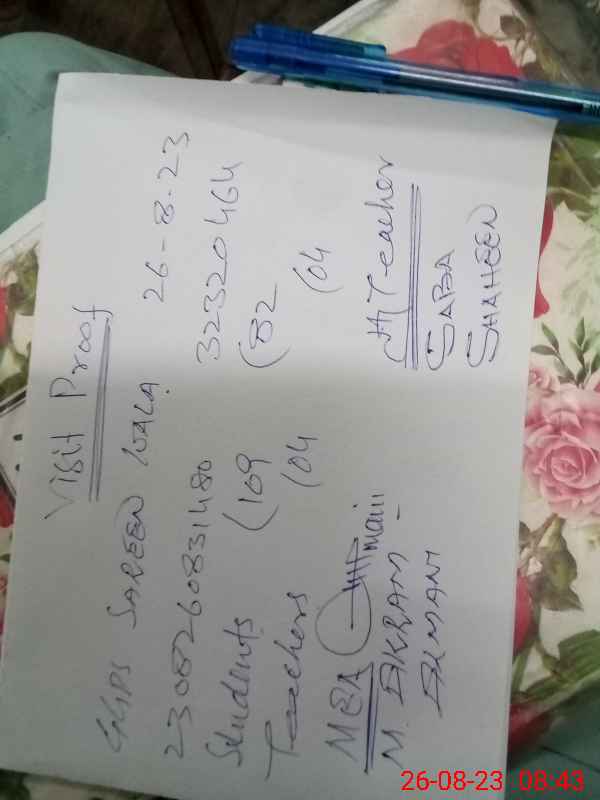 Visit Proof
GGPS SAREEN WALA 26-8-23
2308260831480 32320464
Students (109 (82
Teachers (04 (04
MEA H/Teacher
M. AKRAM SABA
ALMANI SHAHEEN
26-08-23 08:43